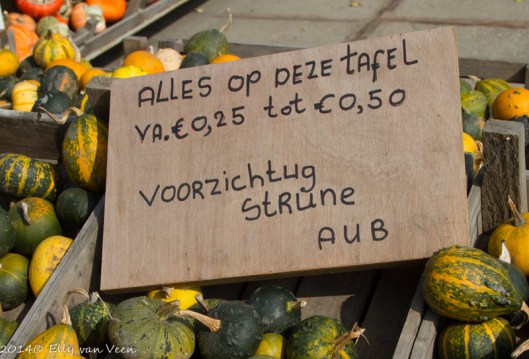 ALLES OP DEZE TAFEL
VA. €0,25 tot €0,50
VOORZICHTUG
STRUNE
AUB
2014© Elly van Veen